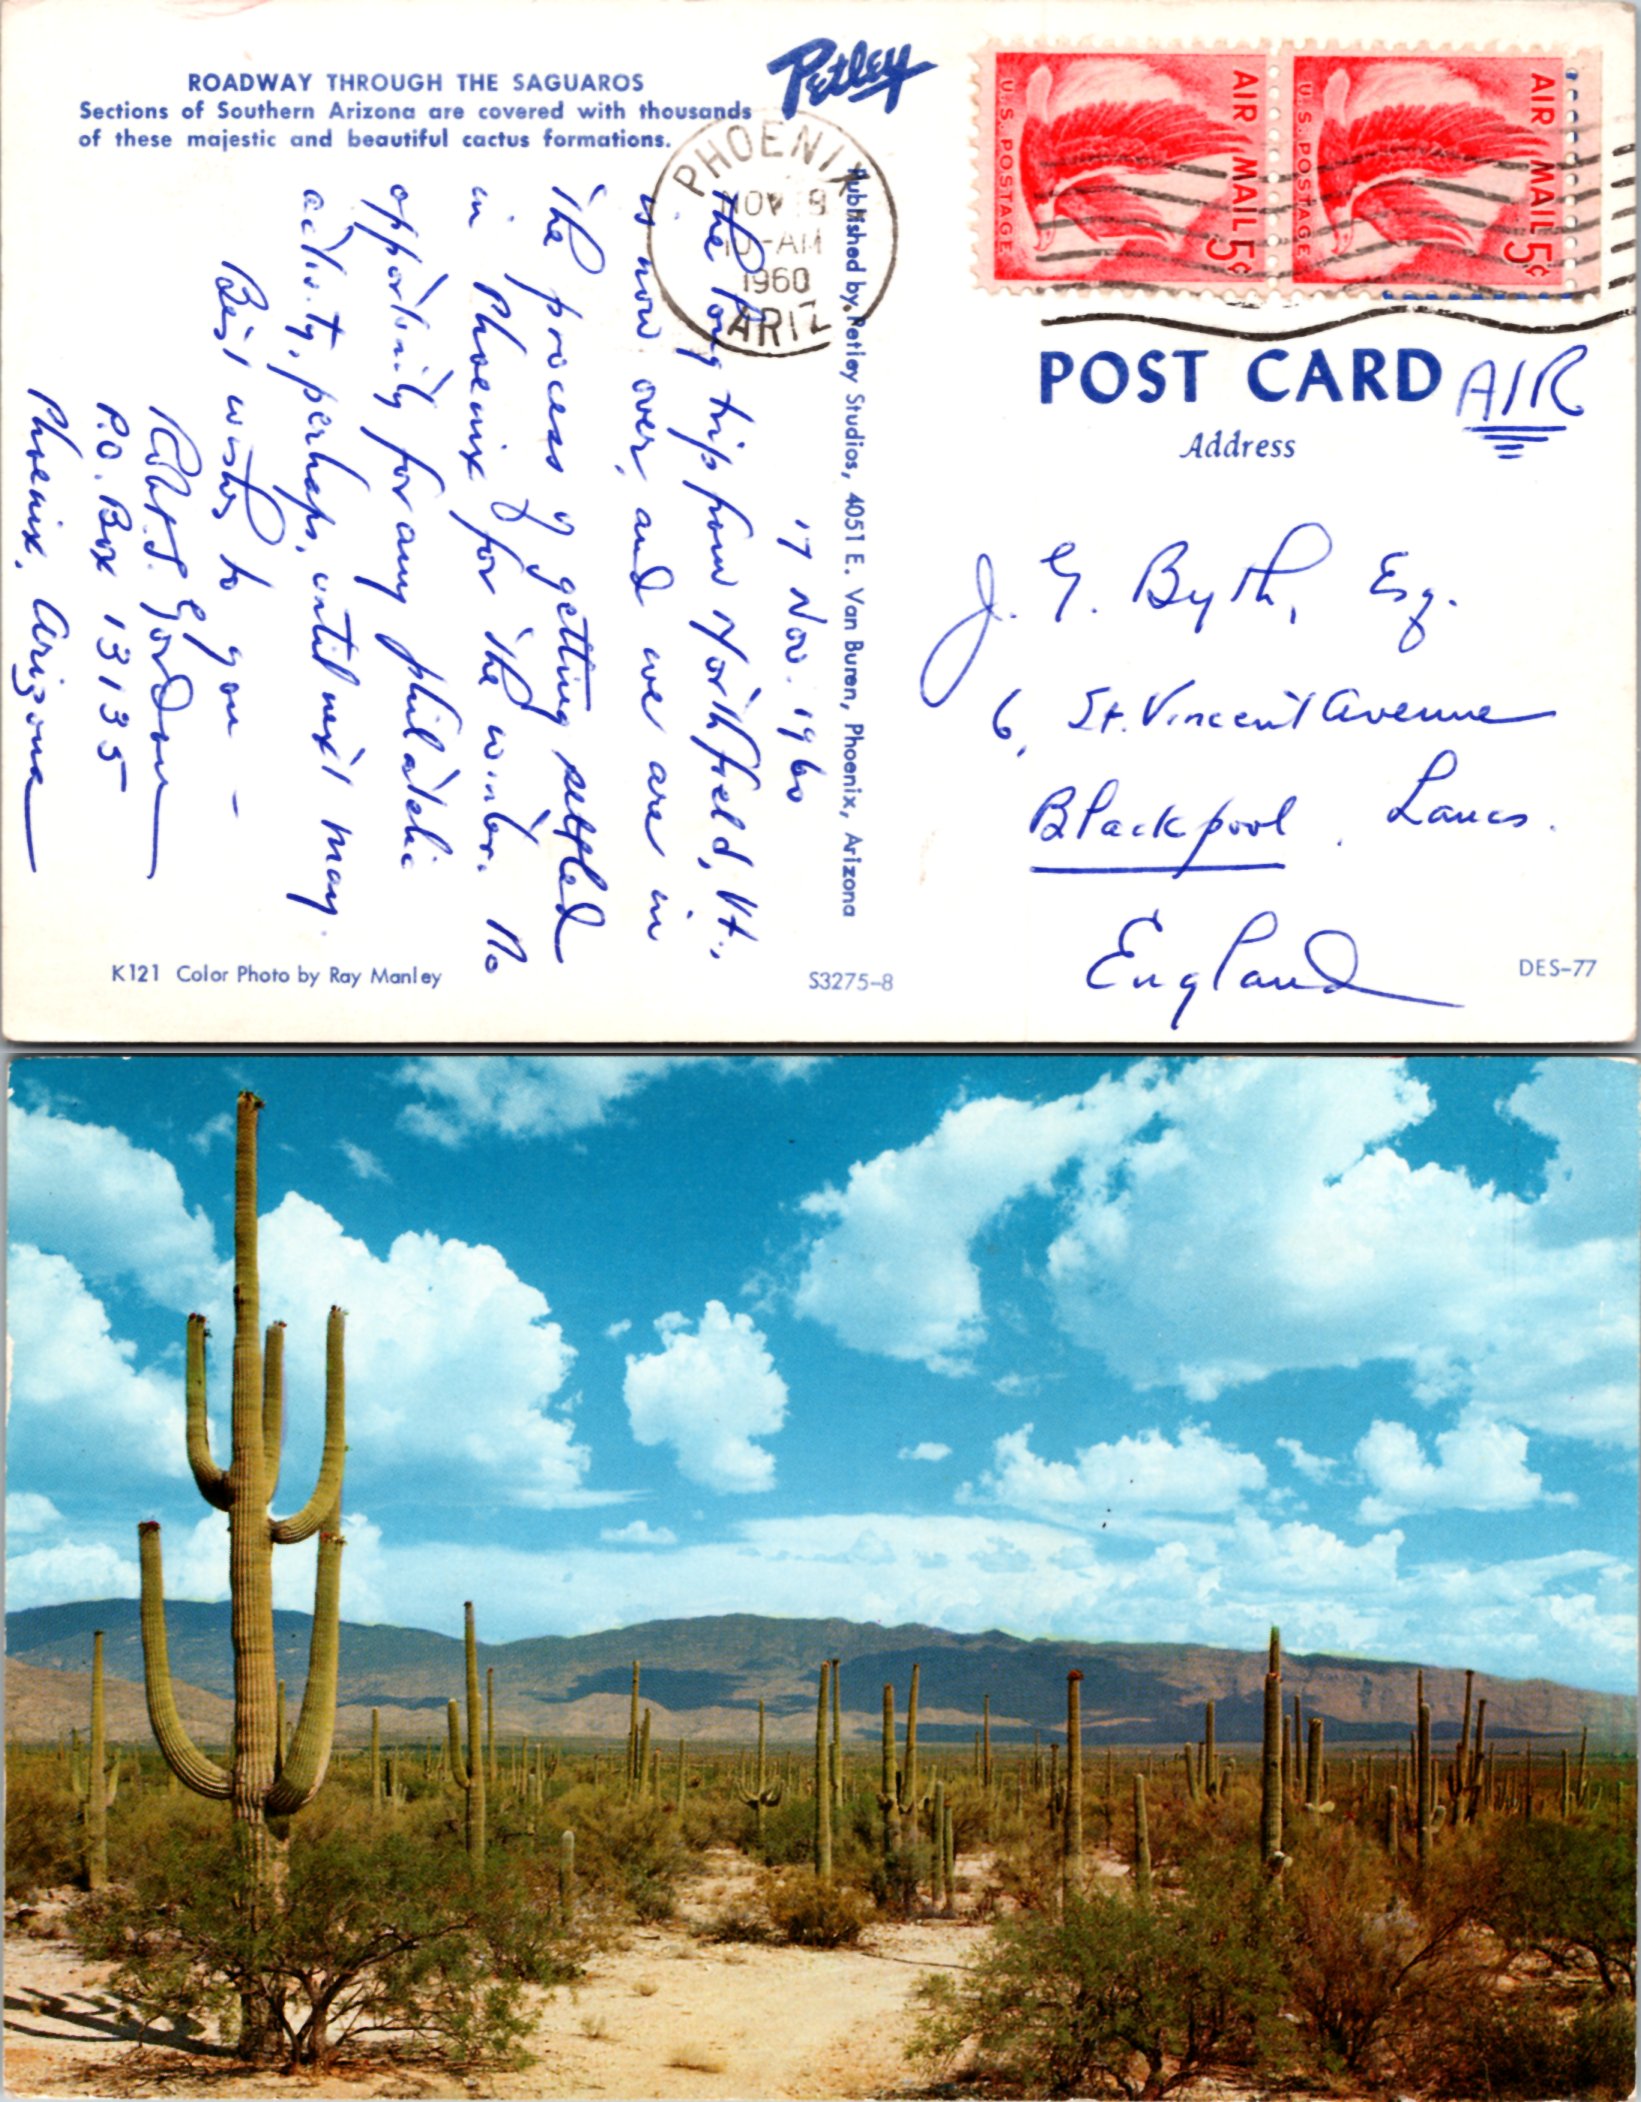 ROADWAY THROUGH THE SAGUAROS
Sections of Southern Arizona are covered with thousands
of these majestic and beautiful cactus formations.
Petley
PHOENIX
NOV 18
10-AM
1960
ARIZ
U.S. POSTAGE
AIR MAIL 5¢
U.S. POSTAGE
AIR MAIL 5¢
POST CARD
AIR
Address
J. G. Byth, Esq.
6, St. Vincent Avenue
Blackpool, Lancs.
England
Published by Petley Studios, 4051 E. Van Buren, Phoenix, Arizona
17 Nov. 1960
The long trip from Northfield, Vt.,
is now over, and we are in
the process of getting settled
in Phoenix for the winter. No
opportunity for any philatelic
activity, perhaps, until next May.
Best wishes to you –
Robt. S. Gordon
P.O. Box 13135
Phoenix, Arizona
K121 Color Photo by Ray Manley
S3275-8
DES-77